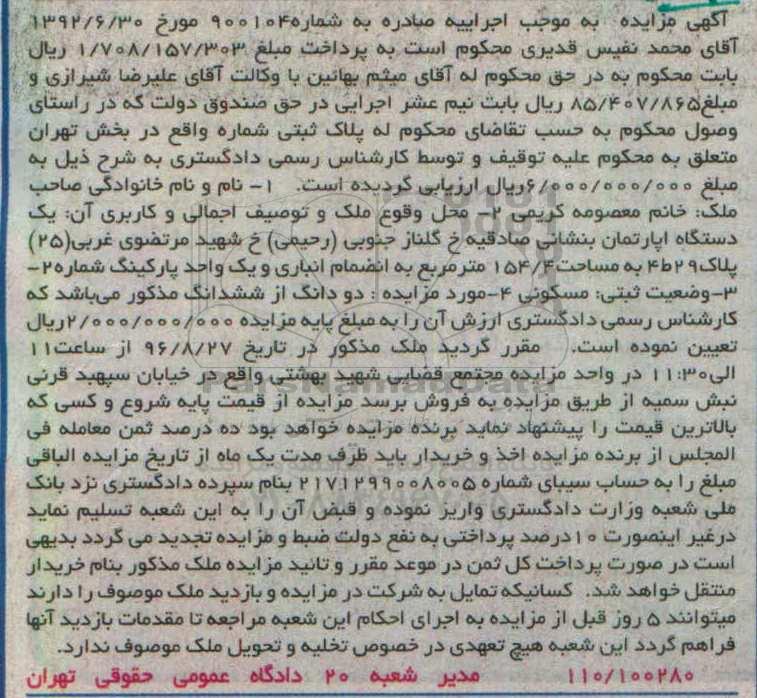 آگهی مزایده به موجب اجراییه صادره به شماره۹۰۰۱۰۴ مورخ ۱۳۹۲/۶/۳۰
آقای محمد نفیس قدیری محکوم است به پرداخت مبلغ ۱/۷۰۸/۱۵۷/۳۰۳ ریال
بابت محکوم به در حق محکوم له آقای میثم بهائین با وکالت آقای علیرضا شیرازی و
مبلغ۸۵/۴۰۷/۸۶۵ ریال بابت نیم عشر اجرایی در حق صندوق دولت که در راستای
وصول محکوم به حسب تقاضای محکوم له پلاک ثبتی شماره واقع در بخش تهران
متعلق به محکوم علیه توقیف و توسط کارشناس رسمی دادگستری به شرح ذیل به
مبلغ ۶/۰۰۰/۰۰۰/۰۰۰ریال ارزیابی گردیده است. ۱- نام و نام خانوادگی صاحب
ملک: خانم معصومه کریمی ۲- محل وقوع ملک و توصیف اجمالی و کاربری آن: یک
دستگاه اپارتمان بنشانی صادقیه خ گلناز جنوبی (رحیمی) خ شهید مرتضوی غربی(۲۵)
پلاک۲۹ط۴ به مساحت۱۵۴/۴ مترمربع به انضمام انباری و یک واحد پارکینگ شماره۲-
۳-وضعیت ثبتی: مسکونی ۴-مورد مزایده : دو دانگ از ششدانگ مذکور می‌باشد که
کارشناس رسمی دادگستری ارزش آن را به مبلغ پایه مزایده ۲/۰۰۰/۰۰۰/۰۰۰ریال
تعیین نموده است. مقرر گردید ملک مذکور در تاریخ ۹۶/۸/۲۷ از ساعت۱۱
الی۱۱:۳۰ در واحد مزایده مجتمع قضایی شهید بهشتی واقع در خیابان سپهبد قرنی
نبش سمیه از طریق مزایده به فروش برسد مزایده از قیمت پایه شروع و کسی که
بالاترین قیمت را پیشنهاد نماید برنده مزایده خواهد بود ده درصد ثمن معامله فی
المجلس از برنده مزایده اخذ و خریدار باید ظرف مدت یک ماه از تاریخ مزایده الباقی
مبلغ را به حساب سیبای شماره ۲۱۷۱۲۹۹۰۰۸۰۰۵ بنام سپرده دادگستری نزد بانک
ملی شعبه وزارت دادگستری واریز نموده و قبض آن را به این شعبه تسلیم نماید
درغیر اینصورت ۱۰درصد پرداختی به نفع دولت ضبط و مزایده تجدید می گردد بدیهی
است در صورت پرداخت کل ثمن در موعد مقرر و تائید مزایده ملک مذکور بنام خریدار
منتقل خواهد شد. کسانیکه تمایل به شرکت در مزایده و بازدید ملک موصوف را دارند
میتوانند ۵ روز قبل از مزایده به اجرای احکام این شعبه مراجعه تا مقدمات بازدید آنها
فراهم گردد این شعبه هیچ تعهدی در خصوص تخلیه و تحویل ملک موصوف ندارد.
۱۱۰/۱۰۰۲۸۰ مدیر شعبه ۲۰ دادگاه عمومی حقوقی تهران
ParsNamadData